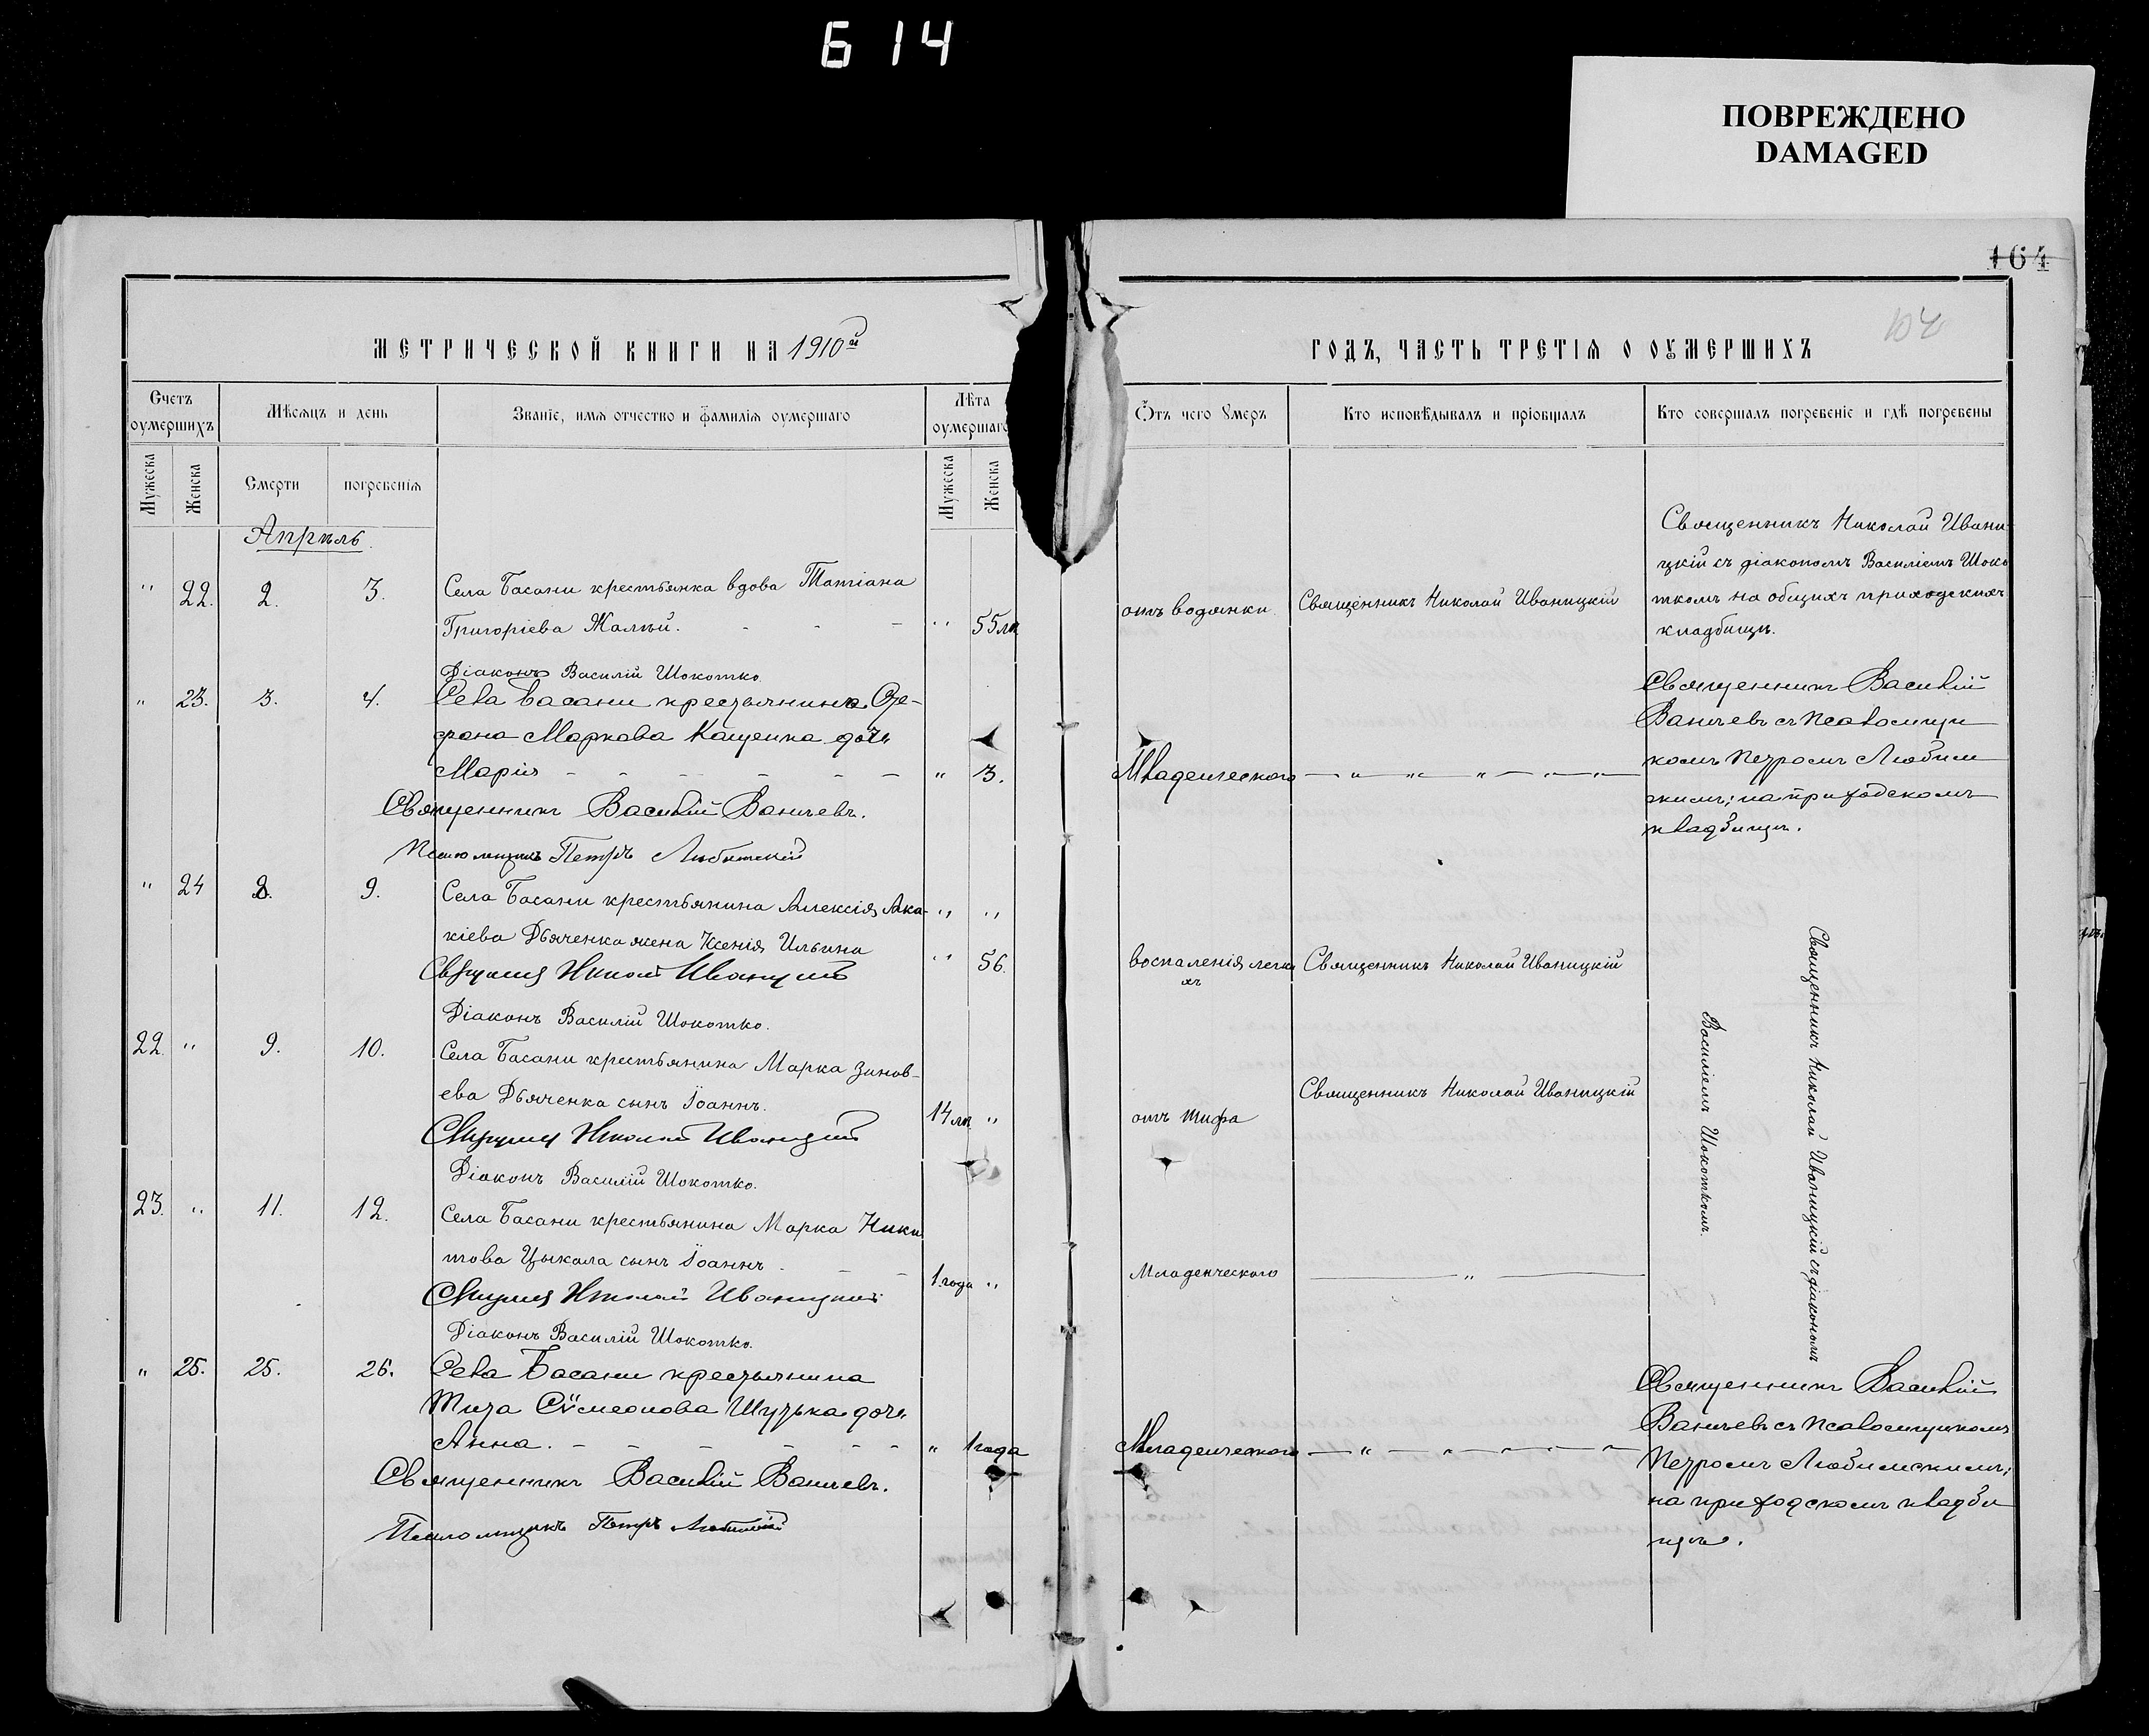 614
ПОВРЕЖДЕНО
DAMAGED
164
104
МЕТРИЧЕСКОЙ КНИГИ НА 1910й
ГОДЪ, ЧАСТЬ ТРЕТІѦ О ОУМЕРШИХЪ
Счетъ оумершихъ
Мѣсѧцъ и день
Званіе, имѧ отчество и фамиліѧ оумершаго
Лѣта оумершаго
Ѿтъ чего Умеръ
Кто исповѣдывалъ и пріобщалъ
Кто совершалъ погребеніе и гдѣ погребены
Мужеска
Женска
Смерти
погребеніѧ
Мужеска
Женска
Апрѣль.
" 22. 2. 3. Села Басани крестьянка вдова Татіана
Григоріева Жалѣй. - - - " 55 лѣ
отъ водянки. Священникъ Николай Иваницкій
Священникъ Николай Ивани-
цкій съ діакономъ Василіемъ Шоко
ткомъ на общихъ приходскихъ
кладбищѣ.
Діаконъ Василій Шокотко.
" 23. 3. 4. Села Басани крестьянина
Маркова Кащенка дочь
Марія - - - - - - " 3.
Младенческого — " — " — " — " — "
Священникъ Василій
съ псаломщи
комъ Петромъ Любим
скимъ; на приходскомъ
кладбищѣ.
Священникъ Василій
Псаломщикъ Петръ Любимскій
" 24 8. 9. Села Басани крестьянина Алексія Ака- " "
кіева Дьяченка жена Ксенія Ильина " 56.
воспаленія легки
хъ
Священникъ Николай Иваницкій
Священникъ Николай Иваницкій
Діаконъ Василій Шокотко.
22. " 9. 10. Села Басани крестьянина Марка Зинов-
ева Дьяченка сынъ Іоаннъ. 14 лѣ. "
отъ тифа
Священникъ Николай Иваницкій
Священникъ Николай Иваницкій
Діаконъ Василій Шокотко.
23. " 11. 12. Села Басани крестьянина Марка Ники
това Цыкала сынъ Іоаннъ. - - 1 года "
Младенческого — " —
Священникъ Николай Иваницкій
Діаконъ Василій Шокотко.
Священникъ Николай Иваницкій съ діакономъ
Василіемъ Шокоткомъ.
" 25. 25. 26. Села Басани крестьянина
Тита Сѵмеонова дочь
Анна. - - - - - - " 1 года
Младенческого — " — " — " — " — "
Священникъ Василій
съ псаломщикомъ
Петромъ Любимскимъ;
на приходскомъ кладби
щѣ.
Священникъ Василій
Псаломщикъ Петръ Любимскій